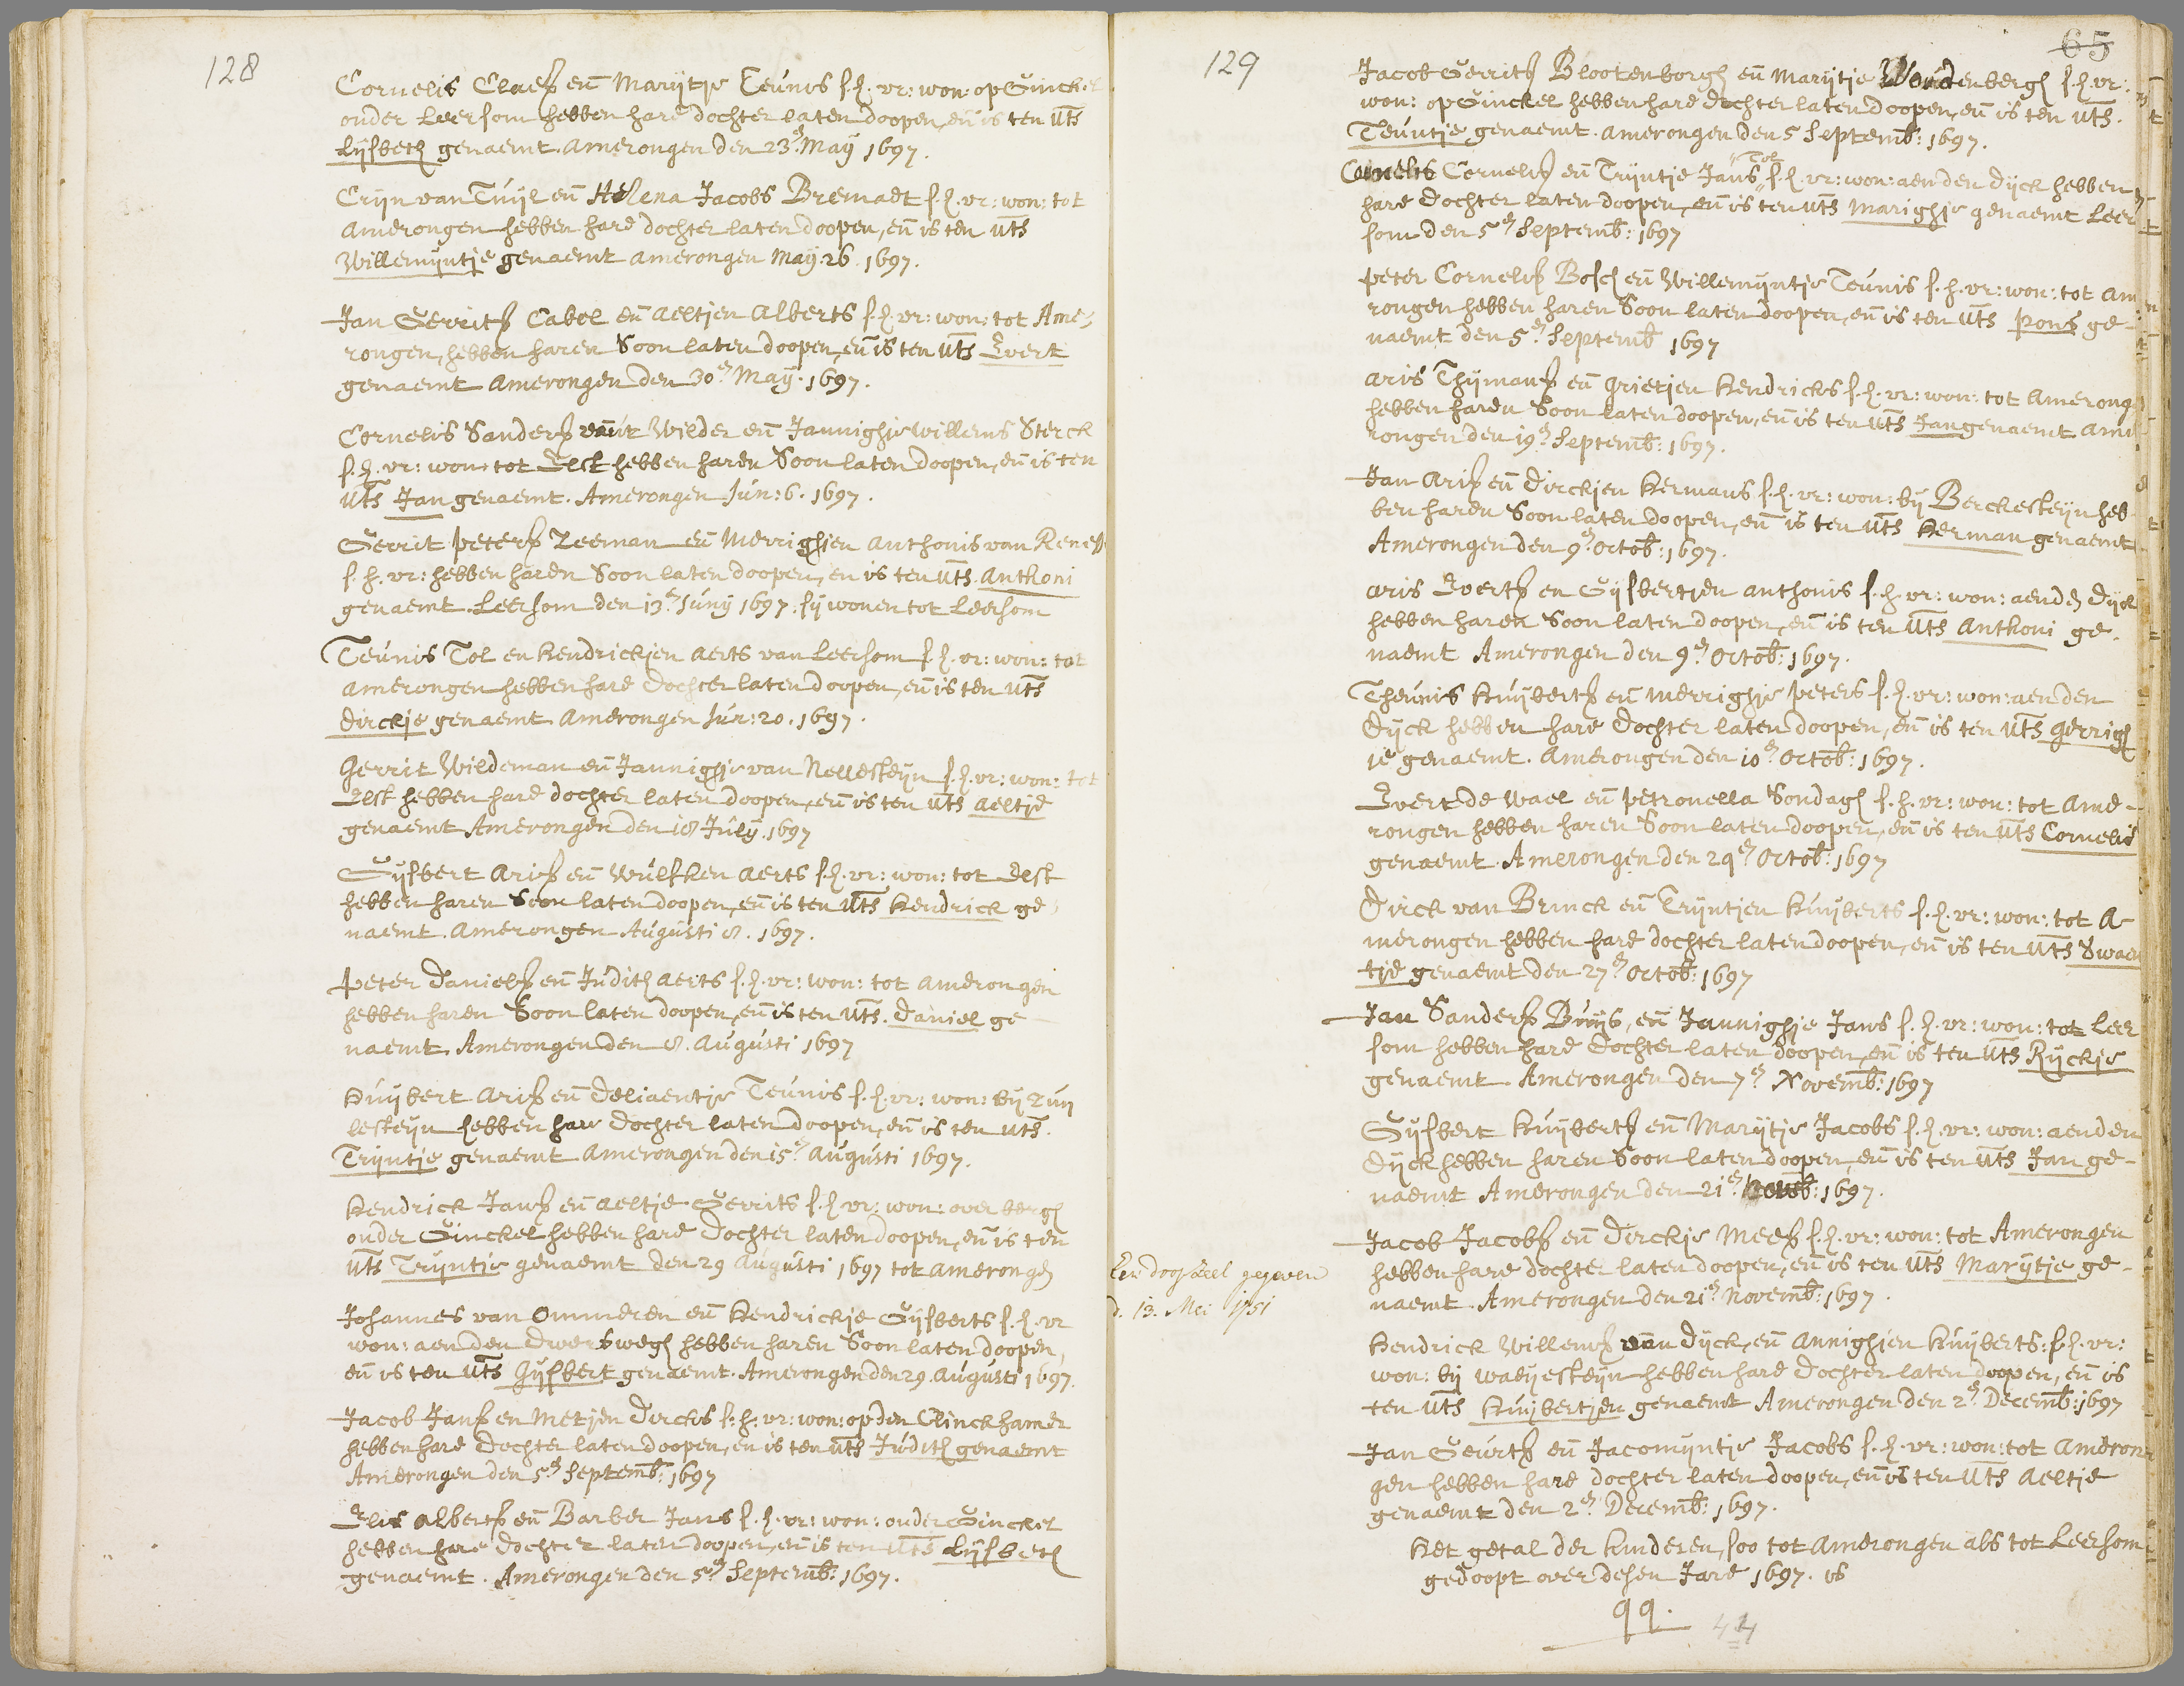 128
Cornelis Claesz en Marijtje Teunis s. h. vr: won: op Ginckel
onder Leersom hebben hare dochter laten doopen, en is ten uts
Lijsbeth genaemt. Amerongen den 23e May 1697.
Crijn van Tuijl en Helena Jacobs Bremaet s. h. vr: won: tot
Amerongen hebben hare dochter laten doopen, en is ten uts
Willemijntje genaemt Amerongen May 26. 1697.
Jan Gerritsz Cabel en Aeltjen Alberts s. h. vr: won: tot Ame-
rongen, hebben haren Soon laten doopen, en is ten uts Evert
genaemt Amerongen den 30e May. 1697.
Cornelis Sandersz vant Wilder en Jannighje Willems Sterck
s. h. vr: won: tot Elst hebben haren Soon laten doopen, en is ten
uts Jan genaemt. Amerongen Jun: 6. 1697.
Gerrit Petersz Zeeman en Merrighjen Anthonis van Renes
s. h. vr: hebben haren Soon laten doopen, en is ten uts. Anthoni
genaemt. Leersom den 13e Juny 1697. sij wonen tot Leersom
Teunis Tol en Hendrickjen Aerts van Leersom s. h. vr: won: tot
Amerongen hebben hare Dochter laten doopen, en is ten uts
Dirckje genaemt Amerongen Jun: 20. 1697.
Gerrit Wildeman en Jannighje van Nellesteijn s. h. vr: won: tot
Elst hebben hare dochter laten doopen, en is ten uts Aeltje
genaemt Amerongen den 18 July. 1697
Gijsbert Arisz en Wulfken Aerts s. h. vr: won: tot Elst
hebben haren Soon laten doopen, en is ten uts Hendrick ge-
naemt. Amerongen Augusti 8. 1697.
Peter Danielsz en Judith Aerts s. h. vr: won: tot Amerongen
hebben haren Soon laten doopen, en is ten uts. Daniel ge
naemt. Amerongen den 8. Augusti 1697
Huijbert Arisz en Deliaentje Teunis s. h. vr: won: bij Zuij
lesteijn hebben hare Dochter laten doopen, en is ten uts.
Trijntje genaemt Amerongen den 15e Augusti 1697.
Hendrick Jansz en Aeltje Gerrits s. h. vr: won: over bergh
onder Ginckel hebben hare Dochter laten doopen, en is ten
uts Trijntje genaemt den 29 Augusti 1697 tot Amerongen
Johannes van Ommeren en Hendrickje Gijsberts s. h. vr
won: aen den Dwersweg hebben haren Soon laten doopen,
en is ten uts Gijsbert genaemt. Amerongen den 29. Augusti 1697.
Jacob Jansz en Metjen Dircks s. h. vr: won: op den Clinckhamer
hebben hare Dochter laten doopen, en is ten uts Judith genaemt
Amerongen den 5e Septemb: 1697
Elis Albertsz en Barber Jans s. h. vr: won: onder Ginckel
hebben hare Dochter laten doopen, en is ten uts Lijsbeth
genaemt. Amerongen den 5e Septemb: 1697.
129
65
Jacob Gerritsz Blootenborgh en Marijtje Woudenbergh s. h. vr:
won: op Ginckel hebben hare dochter laten doopen, en is ten uts.
Teuntje genaemt. Amerongen den 5 Septemb: 1697.
Tol
Cornelis Cornelisz en Trijntje Jans s. h. vr: won: aen den Dijck hebben
hare Dochter laten doopen, en is ten uts Marighje genaemt Leer
som den 5e Septemb: 1697
Peter Cornelisz Bosch en Willemijntje Teunis s. h. vr: won: tot Ame
rongen hebben haren Soon laten doopen, en is ten uts Pons ge-
naemt den 5e Septemb 1697
Aris Thijmansz en Grietjen Hendricks s. h. vr: won: tot Amerong
hebben haren Soon laten doopen, en is ten uts Jan genaemt Ame
rongen den 19e Septemb: 1697.
Jan Arisz en Dirckjen Hermans s. h. vr: won: bij Berckesteijn heb
ben haren Soon laten doopen, en is ten uts Herman genaemt
Amerongen den 9e Octob: 1697.
Aris Evertsz en Gijsbertjen Anthonis s. h. vr: won: aen den Dijck
hebben haren Soon laten doopen, en is ten uts Anthoni ge-
naemt Amerongen den 9e Octob: 1697.
Theunis Huijbertsz en Merrighje Peters s. h. vr: won: aen den
Dijck hebben hare Dochter laten doopen, en is ten uts Gerrigh
je genaemt. Amerongen den 10e Octob: 1697.
Evert de Wael en Petronella Sondagh s. h. vr: won: tot Ame-
rongen hebben haren Soon laten doopen, en is ten uts Cornelis
genaemt. Amerongen den 29e Octob: 1697
Dirck van Brinck en Trijntjen Huijberts s. h. vr: won: tot A-
merongen hebben hare dochter laten doopen, en is ten uts Swaen
tje genaemt den 27e Octob: 1697
Jan Sandersz Buijs, en Jannighje Jans s. h. vr: won: tot Leer
som hebben hare Dochter laten doopen, en is ten uts Rijckje
genaemt. Amerongen den 7e Novemb: 1697
Gijsbert Huijbertsz en Marijtje Jacobs s. h. vr: won: aen den
Dijck hebben haren Soon laten doopen, en is ten uts Jan ge-
naemt Amerongen den 21e Novemb: 1697.
Jacob Jacobsz en Dirckje Meesz s. h. vr: won: tot Amerongen
hebben hare dochter laten doopen, en is ten uts Marijtje ge-
naemt. Amerongen den 21e Novemb: 1697.
Een doopceel gegeven
d. 13. Mei 1751
Hendrick Willemsz van Dijck, en Annighjen Huijberts: s. h. vr:
won: bij Waeijesteijn hebben hare Dochter laten doopen, en is
ten uts Huijbertjen genaemt Amerongen den 2e Decemb: 1697
Jan Geurtsz en Jacomijntje Jacobs s. h. vr: won: tot Ameron
gen hebben hare dochter laten doopen, en is ten uts Aeltje
genaemt den 2e Decemb: 1697.
Het getal der kinderen, soo tot Amerongen als tot Leersom
gedoopt over desen Jare 1697. is
99.
44